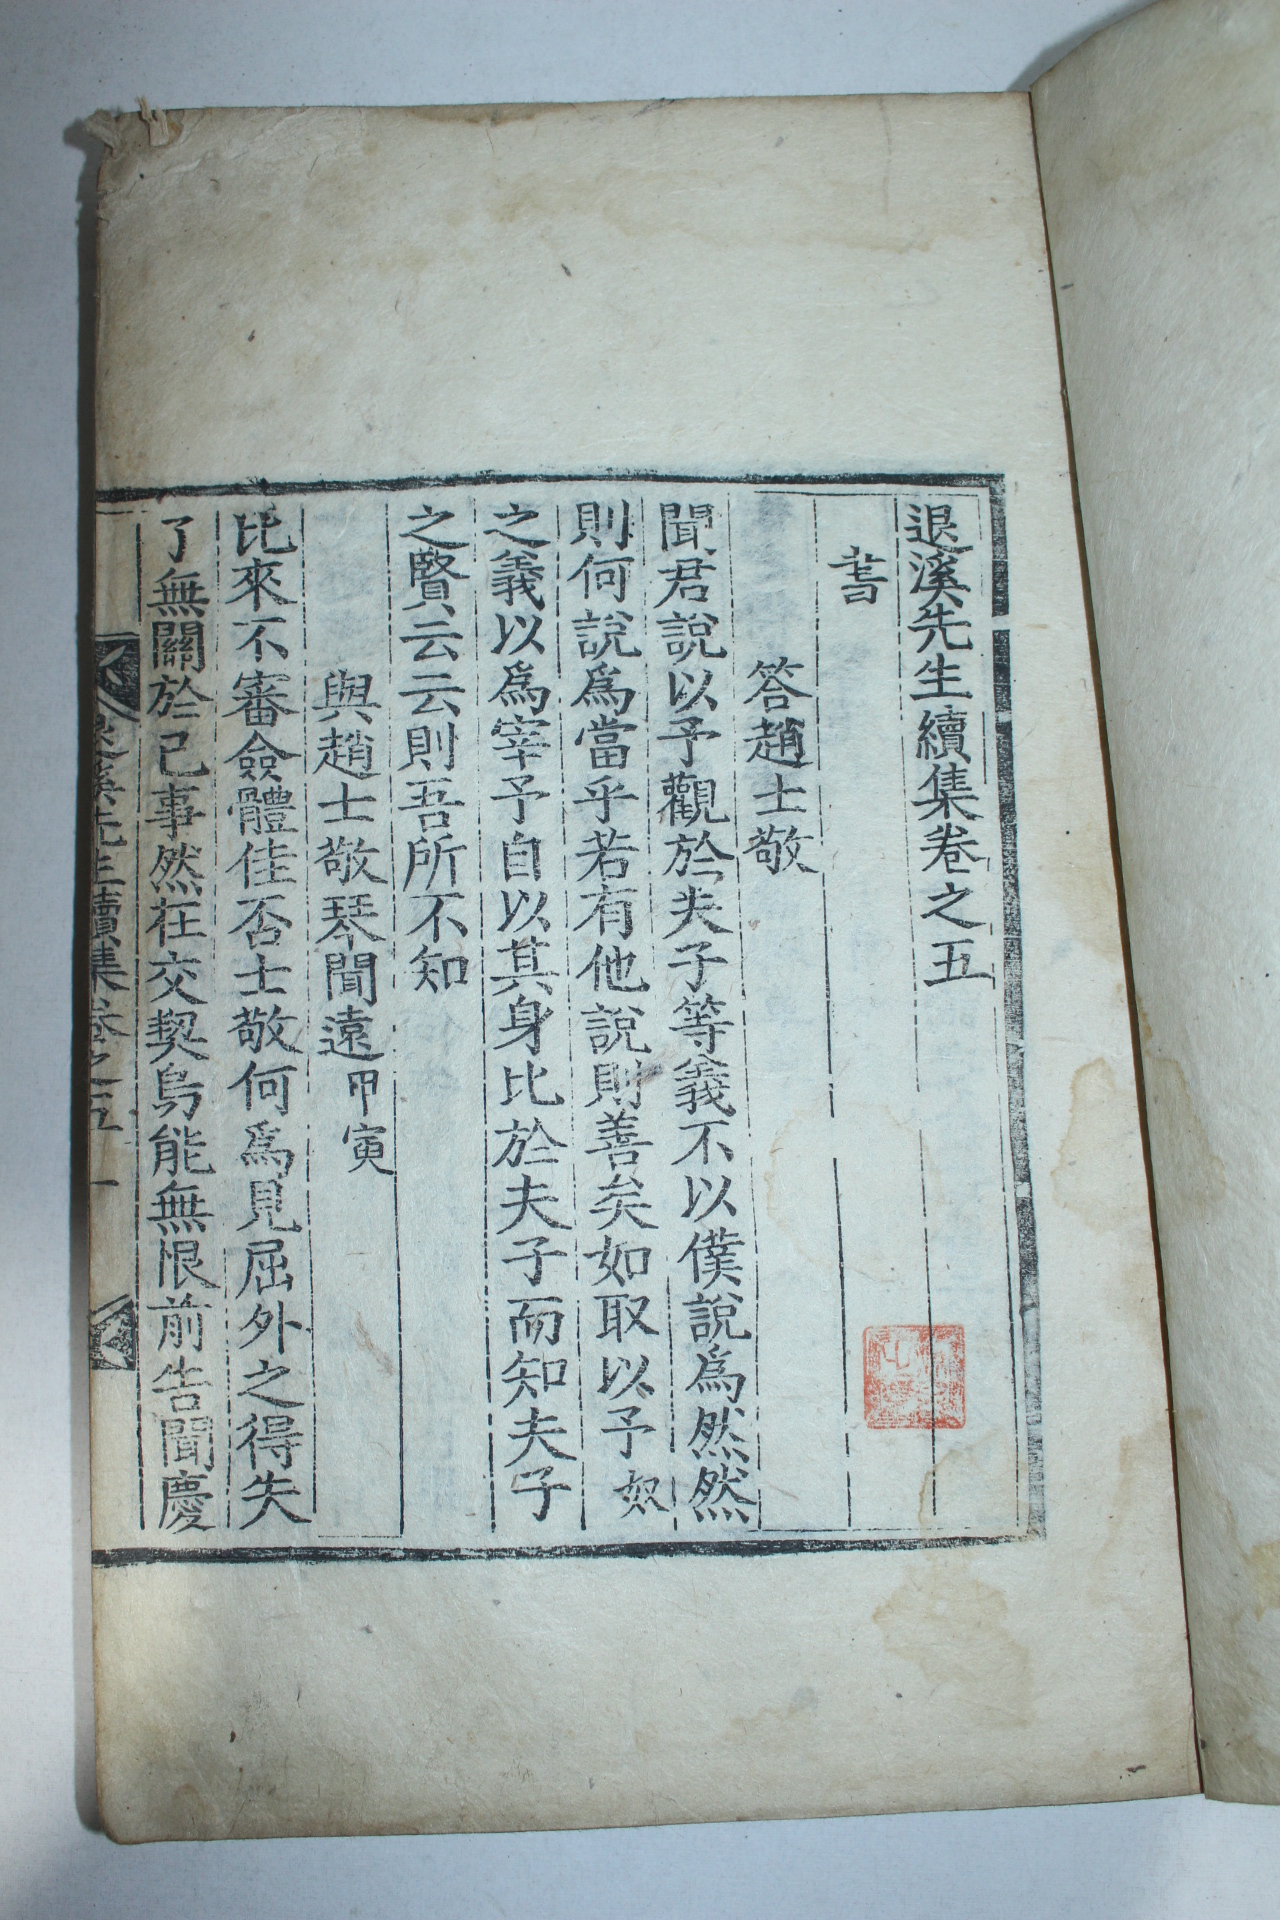 退溪先生續集卷之五
書
答趙士敬
聞君說以予觀於夫子等義不以僕說爲然然
則何說爲當乎若有他說則善矣如取以予奴
之義以爲宰予自以其身比於夫子而知夫子
之賢云云則吾所不知
與趙士敬琴聞遠甲寅
比來不審僉體佳否士敬何爲見屈外之得失
了無關於己事然在交契烏能無恨前告聞慶
退溪先生續集卷之五 一